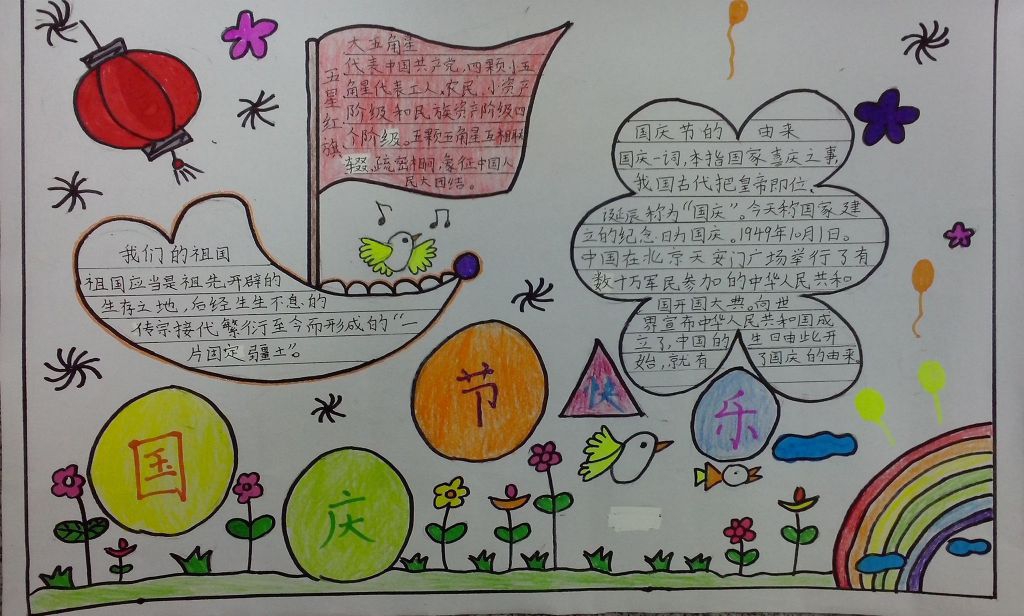 五星红旗
大五角星
代表中国共产党，四颗小五
角星代表工人，农民，小资产
阶级和民族资产阶级四
个阶级。五颗五角星互相联
缀，疏密相间，象征中国人
民大团结。
国庆节的 由来
国庆一词，本指国家喜庆之事，
我国古代把皇帝即位、
诞辰称为“国庆”。今天称国家建
立的纪念日为国庆。1949年10月1日。
中国在北京天安门广场举行了有
数十万军民参加的中华人民共和
国开国大典。向世
界宣布中华人民共和国成
立了，中国的生日由此开
始，就有了国庆的由来。
我们的祖国
祖国应当是祖先开辟的
生存之地，后经生生不息的
传宗接代，繁衍至今而形成的“一
片固定疆土”。
国庆节快乐